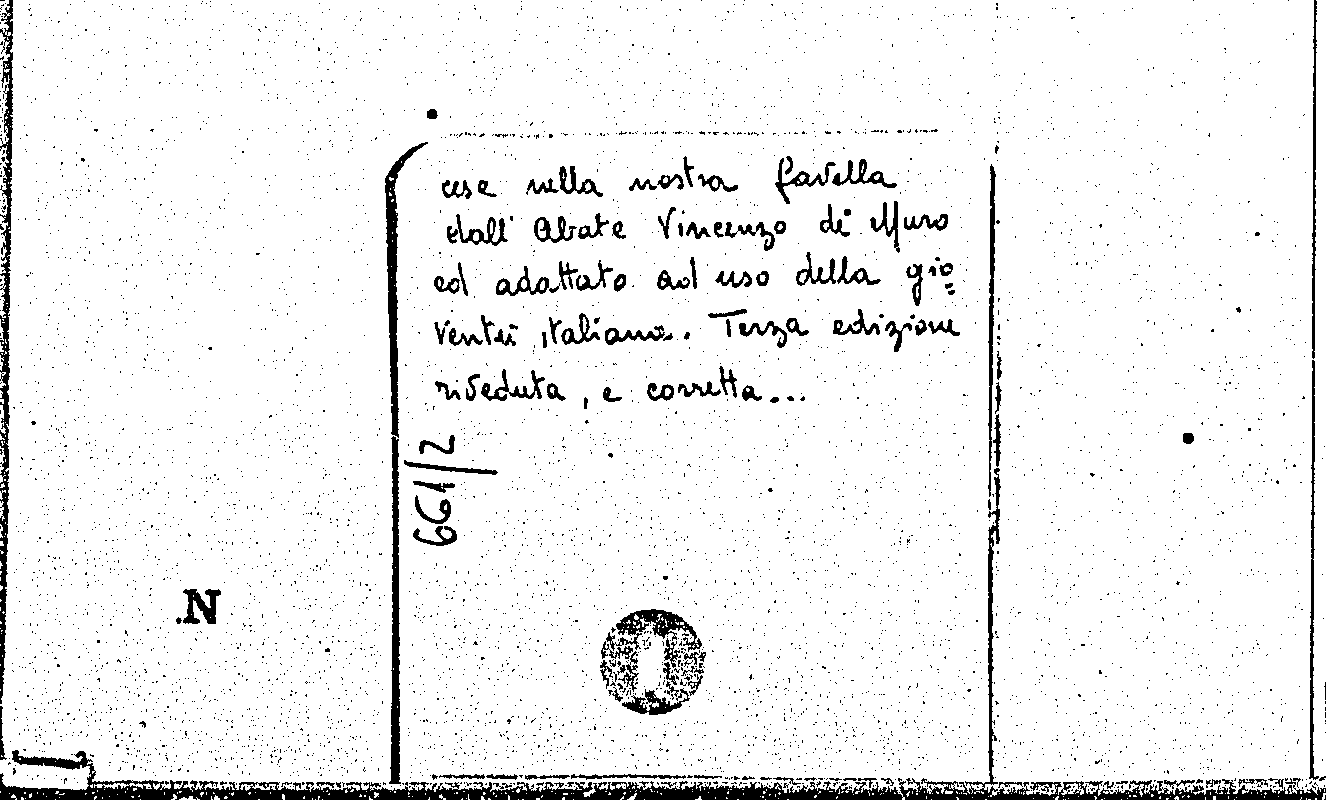 cese nella nostra favella
dall' Abate Vincenzo de' Muro
ed adattato ad uso della gio=
ventù italiana. Terza edizione
riveduta, e corretta...
661/2
.N